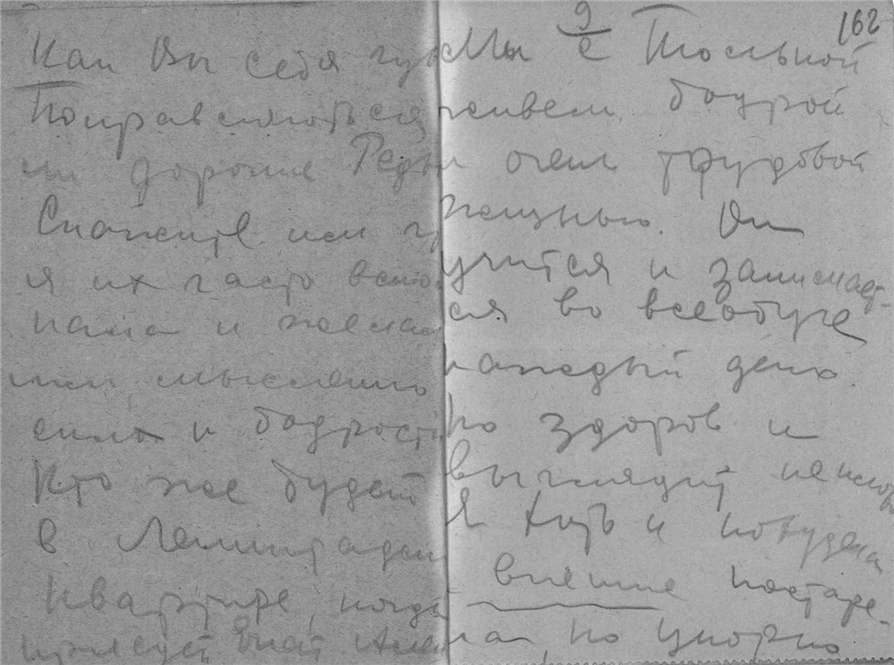 Как Вы себя чу
Поправляються
ли дорогие Реды
Скажите им ч
я их часто вспо
наю и желаю
им мысленно
силы и бодрость
Кто же будет
в Ленинградск
квартире, когда
приедет
162
Мы с Толькой
живем бодрой
очен трудовой
жизнью. Он
учится и занимает
ся во всеобуче
каждый день.
но здоров и
выглядит неплохо
Я хоть и похудела
и внешне постаре-
ла, но упорно